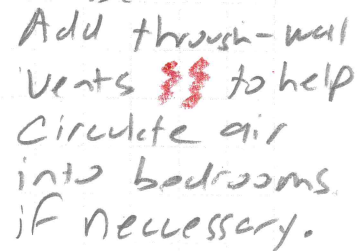 Add through-wall
vents to help
circulate air
into bedrooms
if neccessary.